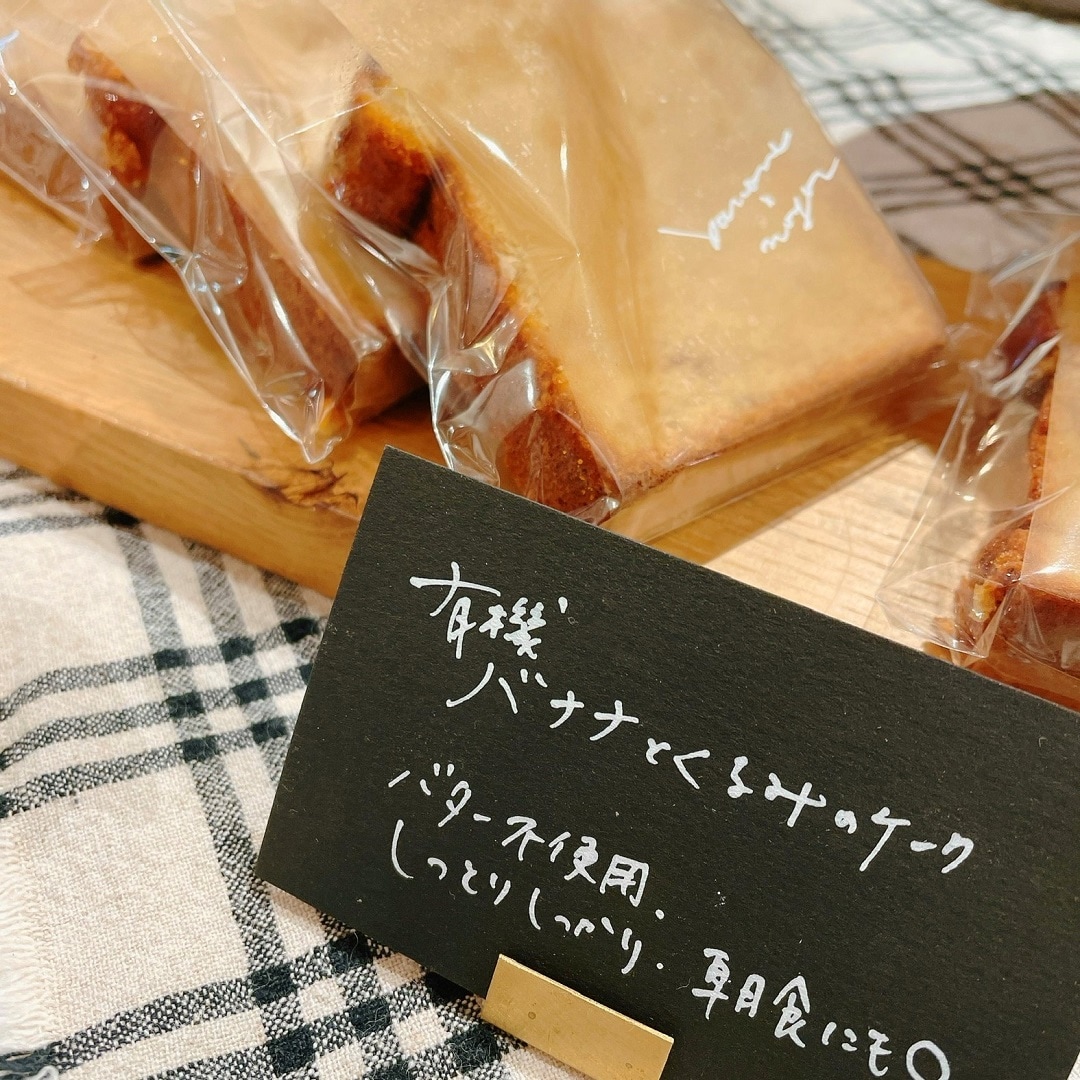 有機
バナナとくるみのケーク
バター不使用.
しっとりしっかり. 朝食にも○